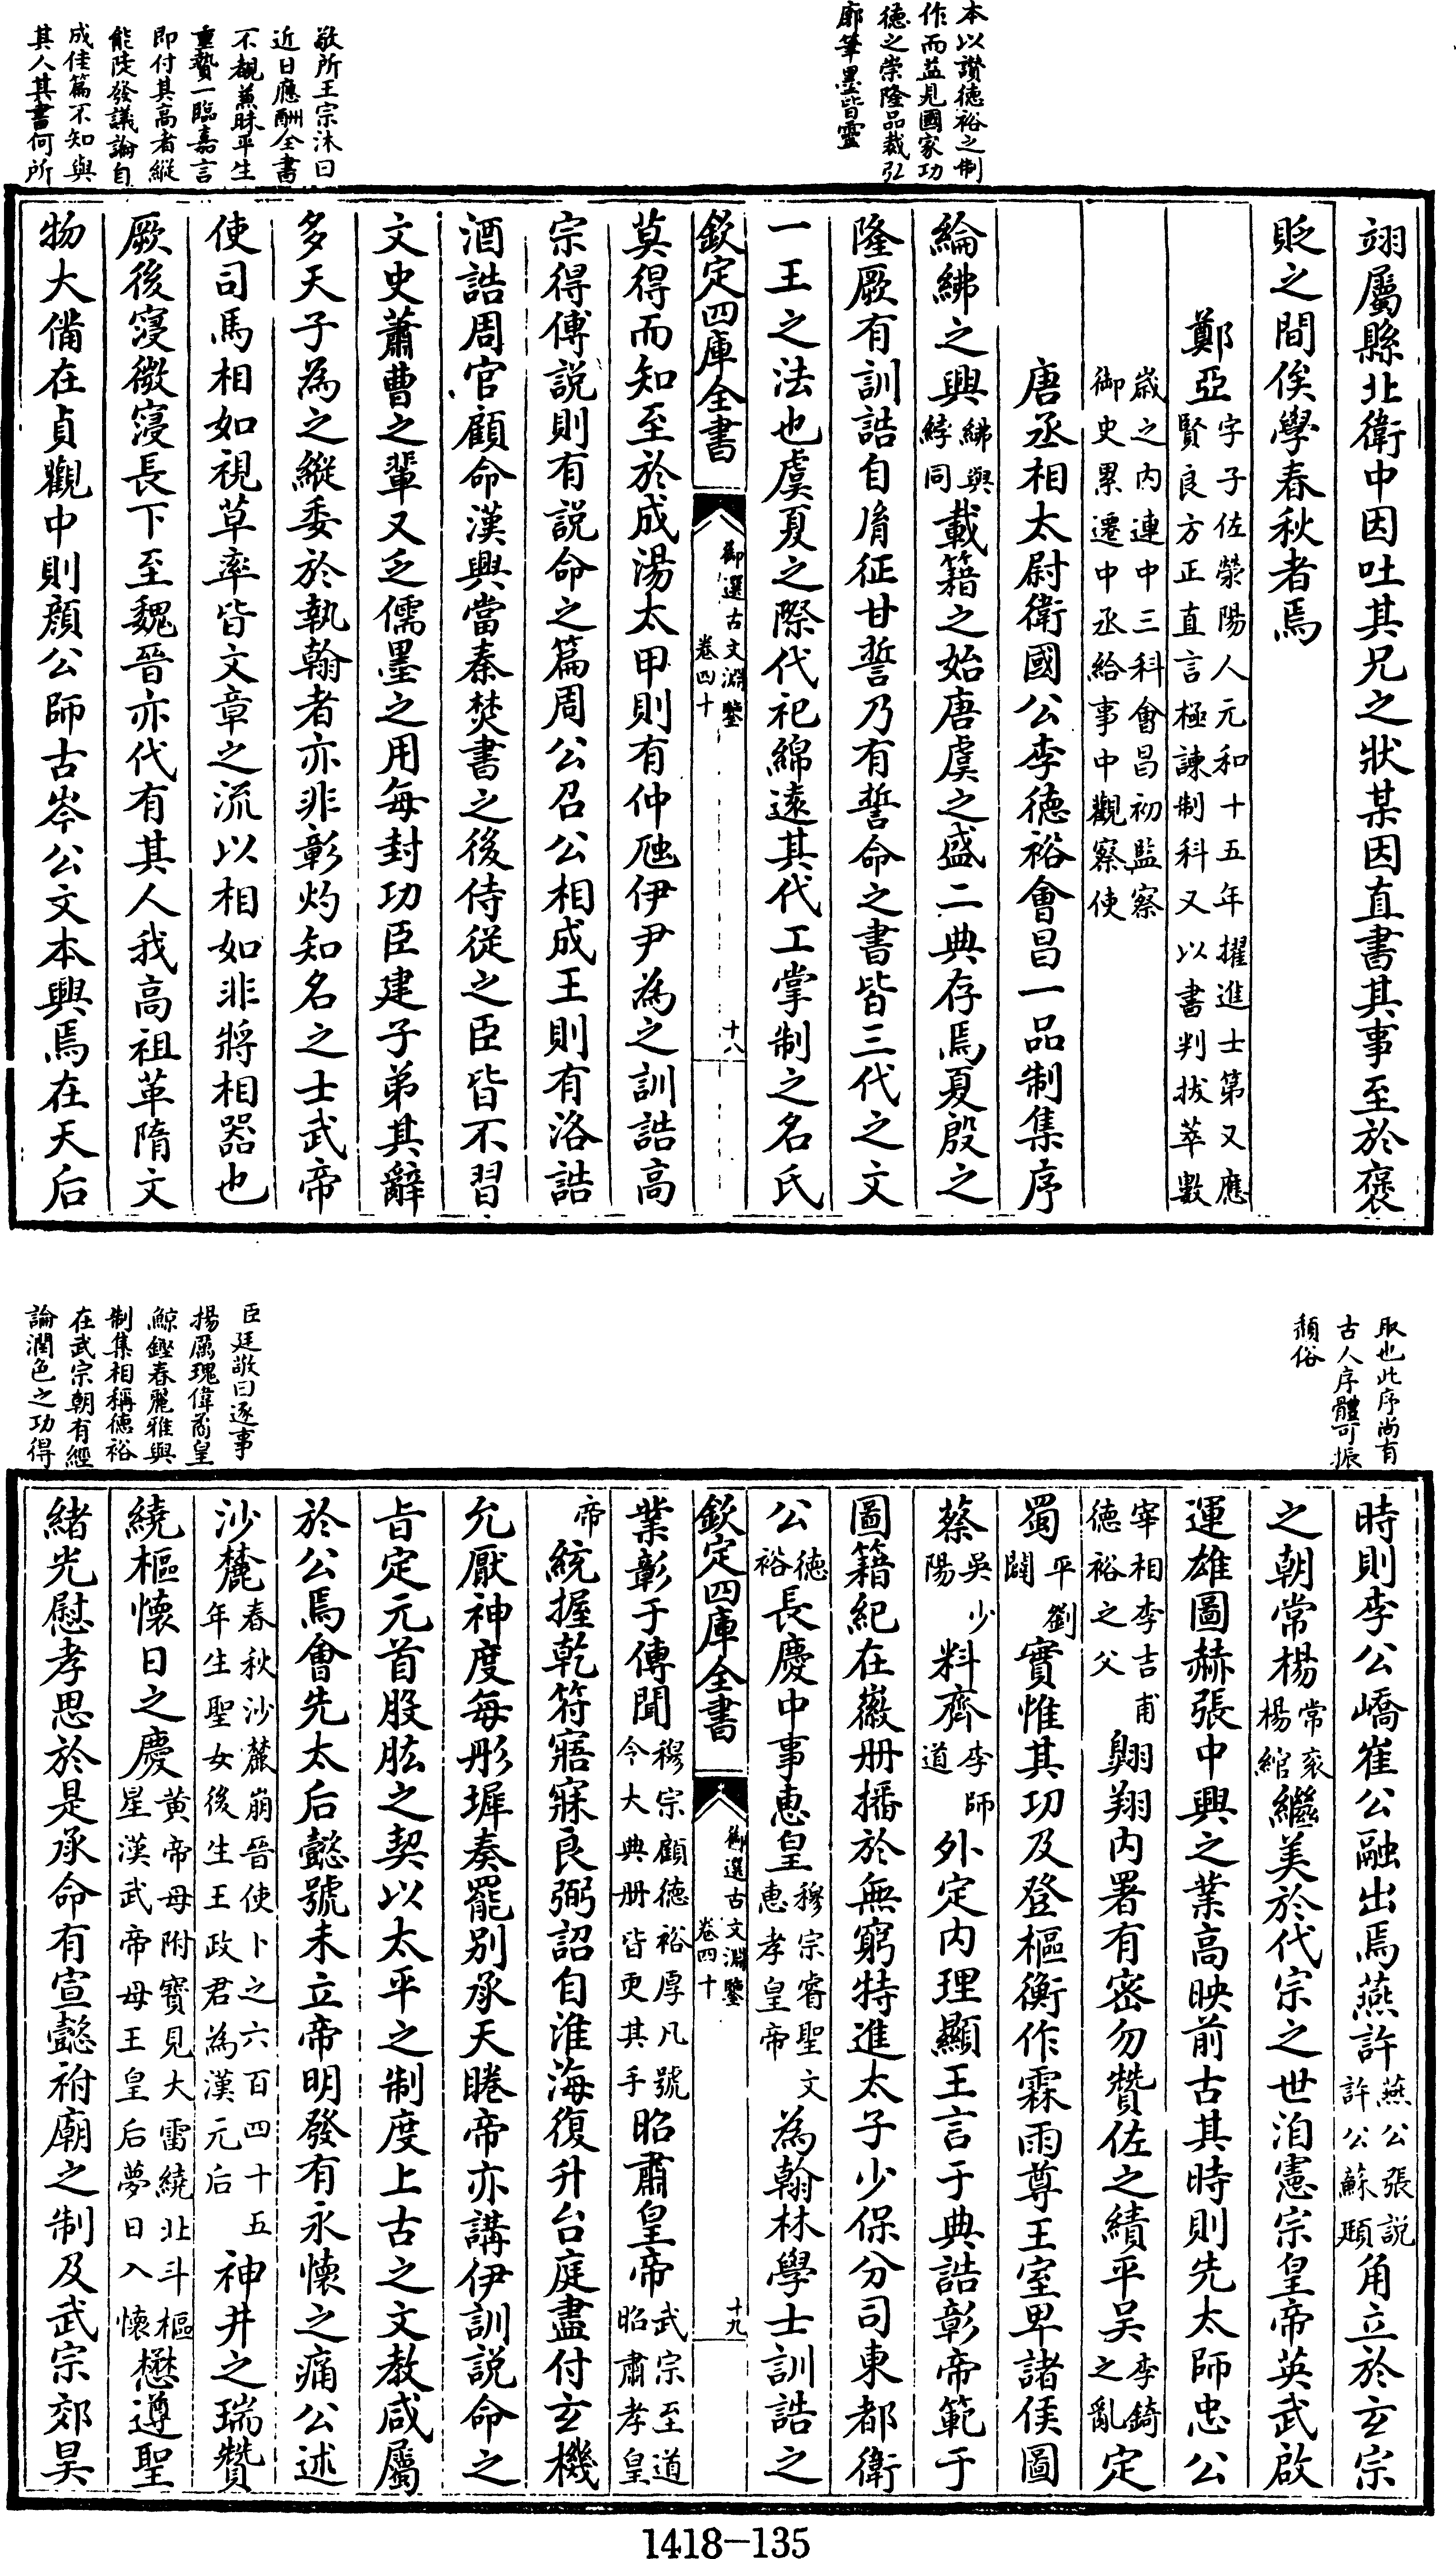 本以讚徳裕之制
作而益見國家功
徳之崇隆品裁弘
廓筆墨皆靈
敬所王宗沐曰
近日應酬全書
不覩蕪昧平生
重贄一臨嘉言
即付其高者縱
能陡發議論自
成佳篇不知與
其人其書何所
翊屬縣北衛中因吐其兄之狀某因直書其事至於褒
貶之間俟學春秋者焉
鄭亞字子佐滎陽人元和十五年擢進士第又應
賢良方正直言極諫制科又以書判拔萃數
歳之内連中三科會昌初監察
御史累遷中丞給事中觀察使
唐丞相太尉衛國公李徳裕會昌一品制集序
綸紼之興紼與綍同載籍之始唐虞之盛二典存焉夏殷之
隆厥有訓誥自𦙍征甘誓乃有誓命之書皆三代之文
一王之法也虞夏之際代祀綿遠其代工掌制之名氏
欽定四庫全書
御選古文淵鑒
卷四十
十八
莫得而知至於成湯太甲則有仲虺伊尹為之訓誥高
宗得傅説則有説命之篇周公召公相成王則有洛誥
酒誥周官顧命漢興當秦焚書之後侍從之臣皆不習
文史蕭曹之輩又乏儒墨之用每封功臣建子弟其辭
多天子為之縱委於執翰者亦非彰灼知名之士武帝
使司馬相如視草率皆文章之流以相如非將相器也
厥後寖微寖長下至魏晉亦代有其人我高祖革隋文
物大備在貞觀中則顔公師古岑公文本興焉在天后
取也此序尚有
古人序體可振
頽俗
臣廷敬曰逐事
揚厲瑰偉矞皇
鯨鏗春麗雅與
制集相稱徳裕
在武宗朝有經
論潤色之功得
時則李公嶠崔公融出焉燕許燕公張説許公蘇頲角立於玄宗
之朝常楊常衮楊綰繼美於代宗之世洎憲宗皇帝英武啟
運雄圖赫張中興之業高映前古其時則先太師忠公
宰相李吉甫
徳裕之父翺翔内署有密勿贊佐之績平吳李錡之亂定
蜀平劉闢實惟其功及登樞衡作霖雨尊王室卑諸侯圖
蔡吳少陽料齊李師道外定内理顯王言于典誥彰帝範于
圖籍紀在徽册播於無窮特進太子少保分司東都衛
公徳裕長慶中事惠皇穆宗睿聖文惠孝皇帝為翰林學士訓誥之
欽定四庫全書
御選古文淵鑒
卷四十
十九
業彰于傳聞穆宗顧徳裕厚凡號今大典册皆更其手昭肅皇帝武宗至道昭肅孝皇
帝統握乾符寤寐良弼詔自淮海復升台庭盡付玄機
允厭神度每彤墀奏罷别承天睠帝亦講伊訓説命之
旨定元首股肱之契以太平之制度上古之文教咸屬
於公焉會先太后懿號未立帝明發有永懷之痛公述
沙麓春秋沙麓崩晉使卜之六百四十五年生聖女後生王政君為漢元后神井之瑞贊
繞樞懷日之慶黄帝母附寶見大雷繞北斗樞星漢武帝母王皇后夢日入懷懋遵聖
緒光慰孝思於是承命有宣懿祔廟之制及武宗郊昊
1418-135